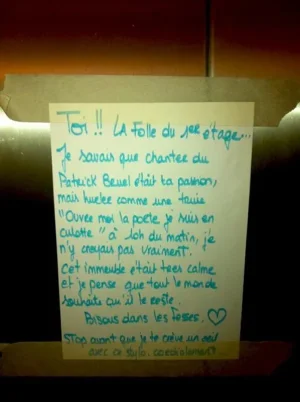 Toi !! LA Folle du 1er étage...
Je savais que chanter du
Patrick Bruel était ta passion,
mais hurler comme une truie
"Ouvre moi la porte je suis en
culotte" à 4h du matin, je
n'y croyais pas vraiment.
cet immeuble était tres calme
et je pense que tout le monde
souhaite qu'il le reste.
Bisous dans les fesses. ♡
STOP avant que je te crève un oeil
avec ce stylo. cordialement